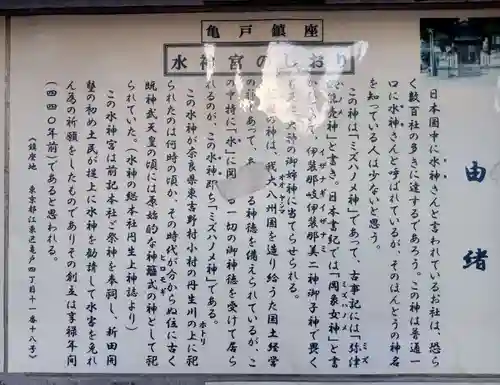 亀戸鎮座
水神宮のしおり
由緒
日本国中に水神さんと言われているお社は、恐ら
く数百社の多きに達するであろう。この神は普通一
口に水神さんと呼ばれているが、そのほんとうの神名
を知っている人は少ないと思う。
この神は「ミズハノメ神」であって、古事記には「弥津
ミズ
売神」と書き。日本書紀では「罔象女神」と書
ミズハノメ
伊装那岐伊装那美二神御子神で畏く
イザナギ イザナミ
大神の御姉神に当てらせられる。
の神は、我大八州国を造り給うた国土経営
オオヤシマ
あって、
る神徳を備えられているが、こ
の中特に「水」に関
る一切の御神徳を受けて居ら
れるのが、この水神即ち「ミズハノメ神」である。
この水神が奈良県東吉野村小村の丹生川の上に祀
ホトリ
られたのは何時の頃か、その時代が分からぬ位に古く
既神武天皇の頃には原始的な神籬式の神として祀
ヒロモギ
られていた。(水神の総本社丹生上神誌より)
この水神宮は前記本社ご祭神を奉祠し、新田開
墾の初め土民が堤上に水神を勧請して水害を免れ
ん為の祈願をしたものでありその創立は享禄年間
(四四〇年前)であると思われる。
(鎮座地 東京都江東区亀戸四丁目十一番十八号)